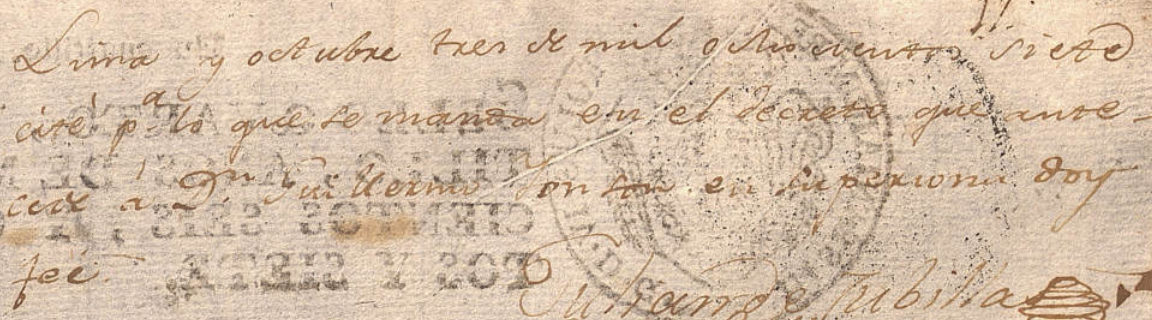 Lima y octubre tres de mil ochocientos siete
cité p.ª lo que se manda en el decreto que ante-
cede á D.n Guillermo Yonson en su persona doy
feé.
Julian de Cubillas